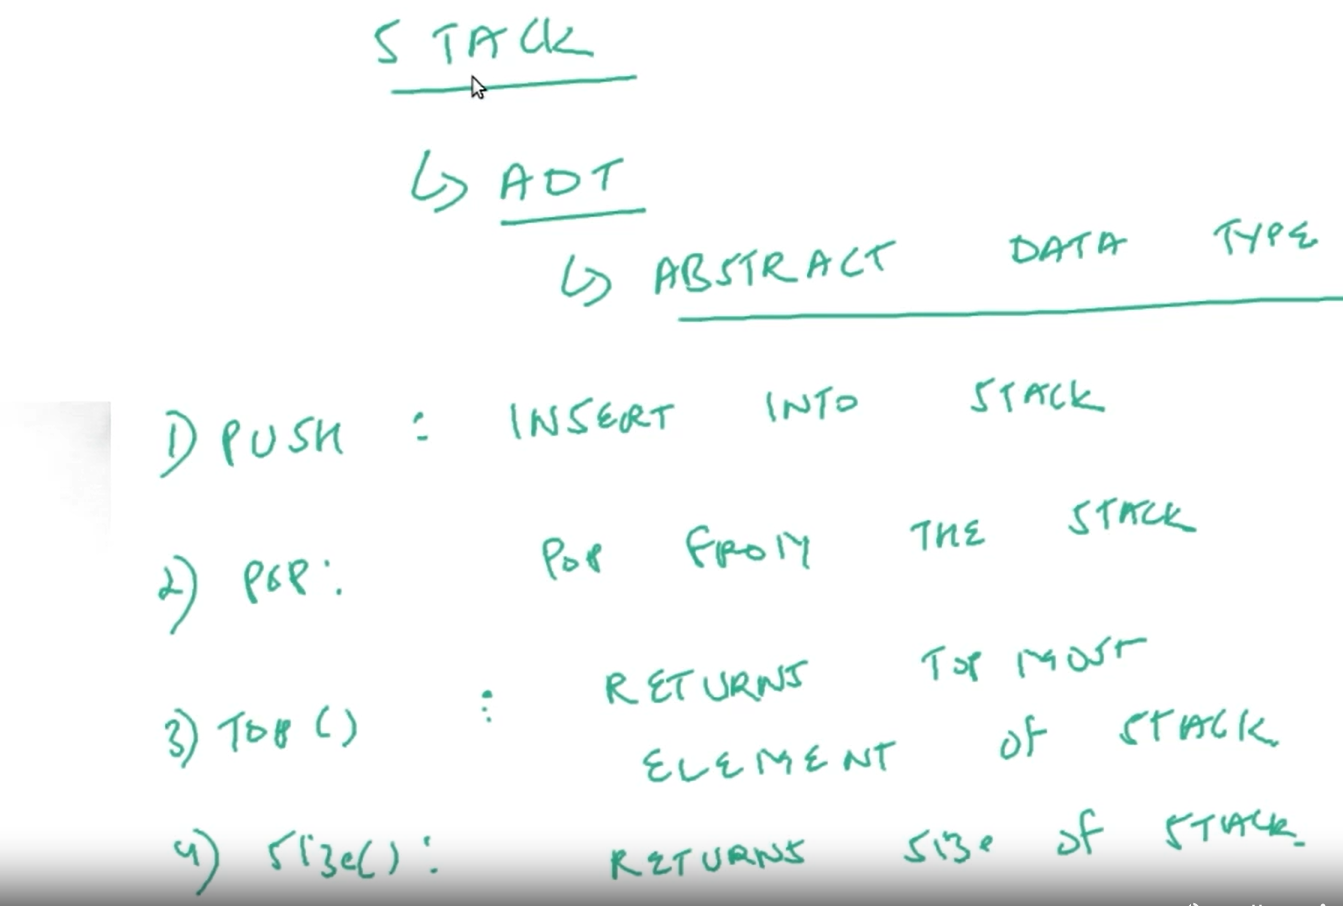 STACK
↳ ADT
↳ ABSTRACT DATA TYPE
1) PUSH : INSERT INTO STACK
2) POP : POP FROM THE STACK
3) TOP () : RETURNS TOP MOST
ELEMENT OF STACK
4) Size() : RETURNS Size of STACK